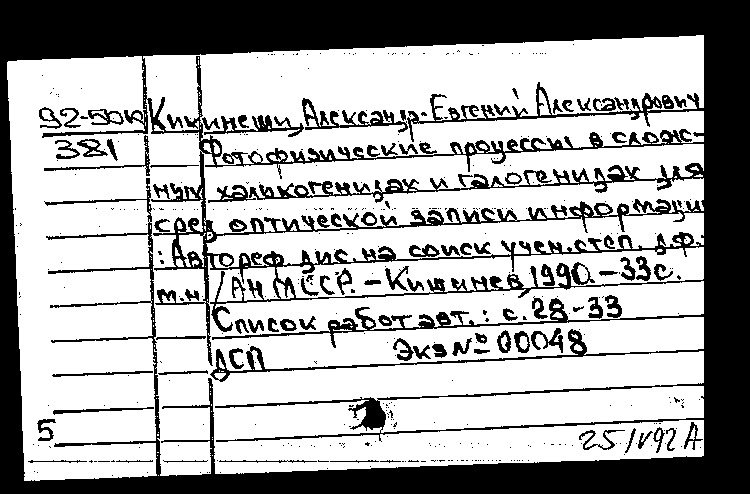 92-50к Кикинеши, Александр-Евгений Александрович
381 Фотофизические процессы в слож-
ных халькогенидах и галогенидах для
сред оптической записи информации
: Автореф. дис. на соиск учен. степ. д.ф.-
м.н. /АН МССР. - Кишинев, 1990. - 33с.
Список работ авт.: с. 28-33
ДСП Экз № 00048
5
25/V92 А